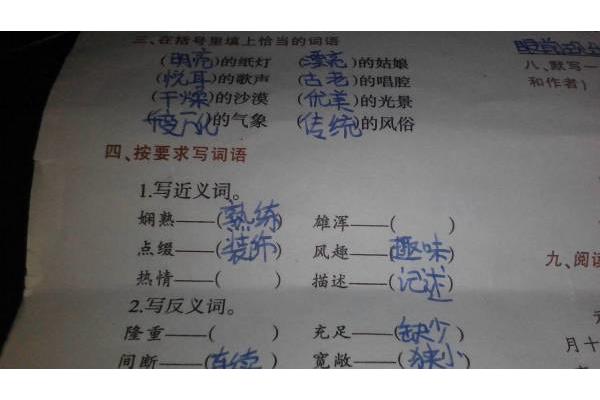 三、在括号里填上恰当的词语
(明亮)的纸灯 (漂亮)的姑娘
(悦耳)的歌声 (古老)的唱腔
(干燥)的沙漠 (优美)的光景
的气象 (传统)的风俗
四、按要求写词语
1.写近义词。
娴熟——(熟练) 雄浑——( )
点缀——(装饰) 风趣——(趣味)
热情——( ) 描述——(记述)
2.写反义词。
隆重——( ) 充足——(缺少)
间断——(连续) 宽敞——(狭小)
八、默写一
和作者)
九、阅读
月十